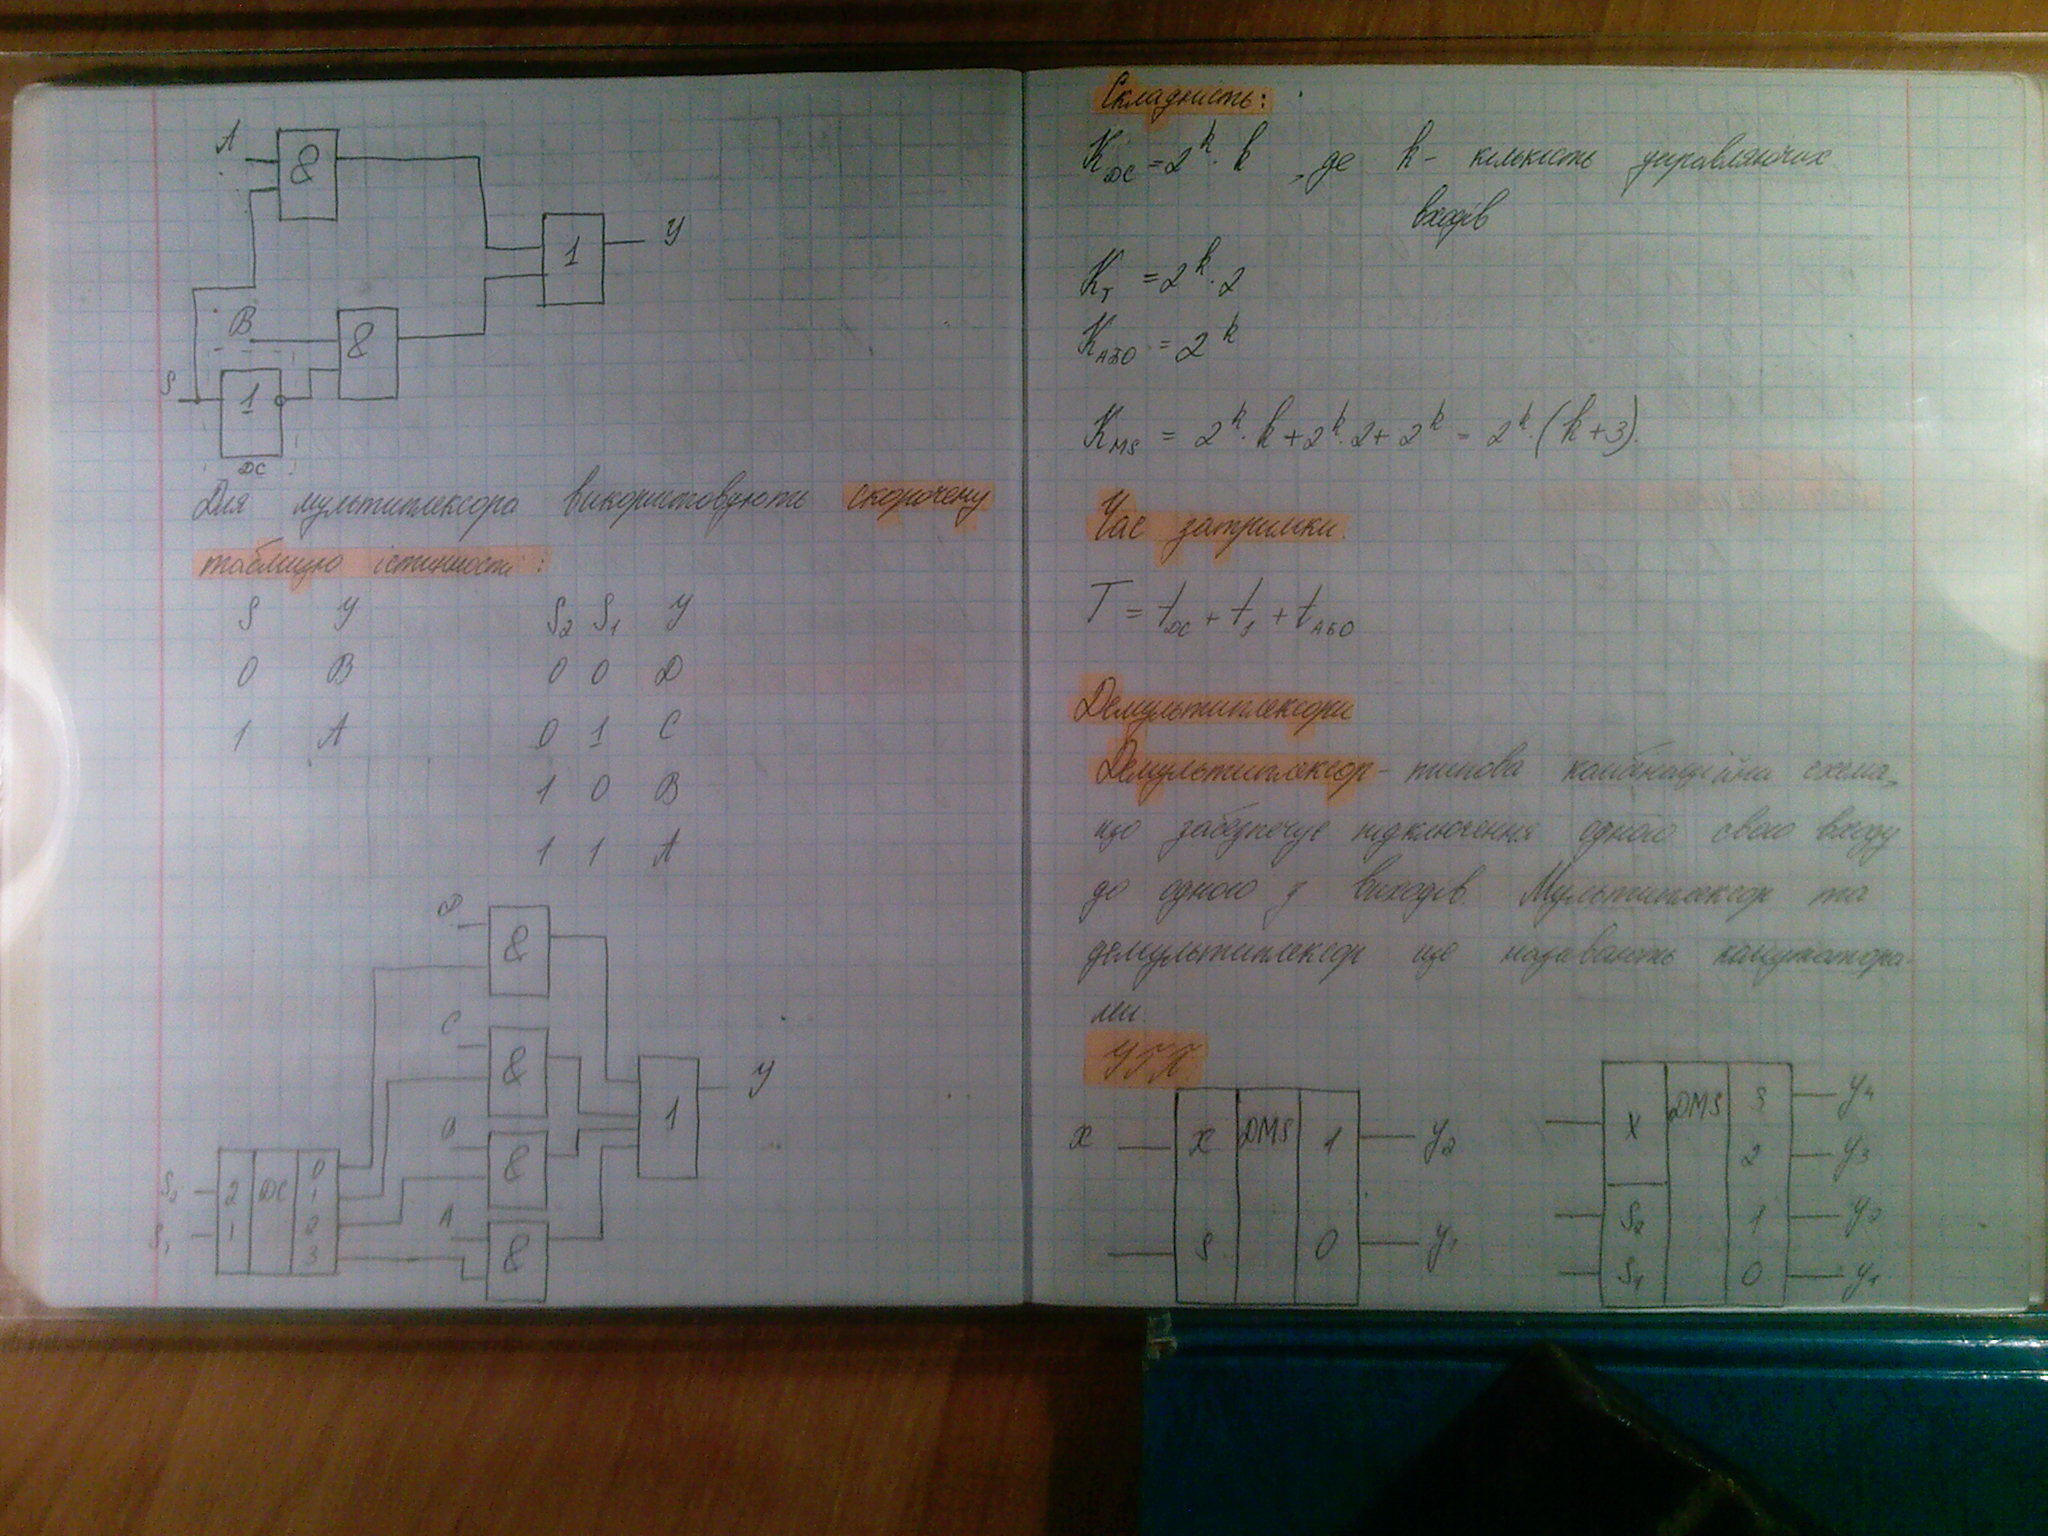 A
&
1
У
B
&
S
1
DC
Для мультиплексора використовують скорочену
таблицю істинності:
S У
0 B
1 A
S₂ S₁ У
0 0 D
0 1 C
1 0 B
1 1 A
D
&
C
&
B
&
A
&
1
У
S₂ 2 DC 0
S₁ 1 1
2
3
Складність:
K_DC = 2^k · k , де k - кількість управляючих
входів
K_АБО = 2^k
K_MS = 2^k · k + 2^k · 2 + 2^k = 2^k · (k+3).
Час затримки.
T = t_DC + t_1 + t_АБО
Демультиплексори
Демультиплексор - типова комбінаційна схема,
що забезпечує підключення одного свого входу
до одного з виходів. Мультиплексор та
демультиплексор ще називають комутатора-
ми.
УГП
X X DMS 1 У₂
S 0 У₁
X DMS 3 У₄
2 У₃
S₂ 1 У₂
S₁ 0 У₁